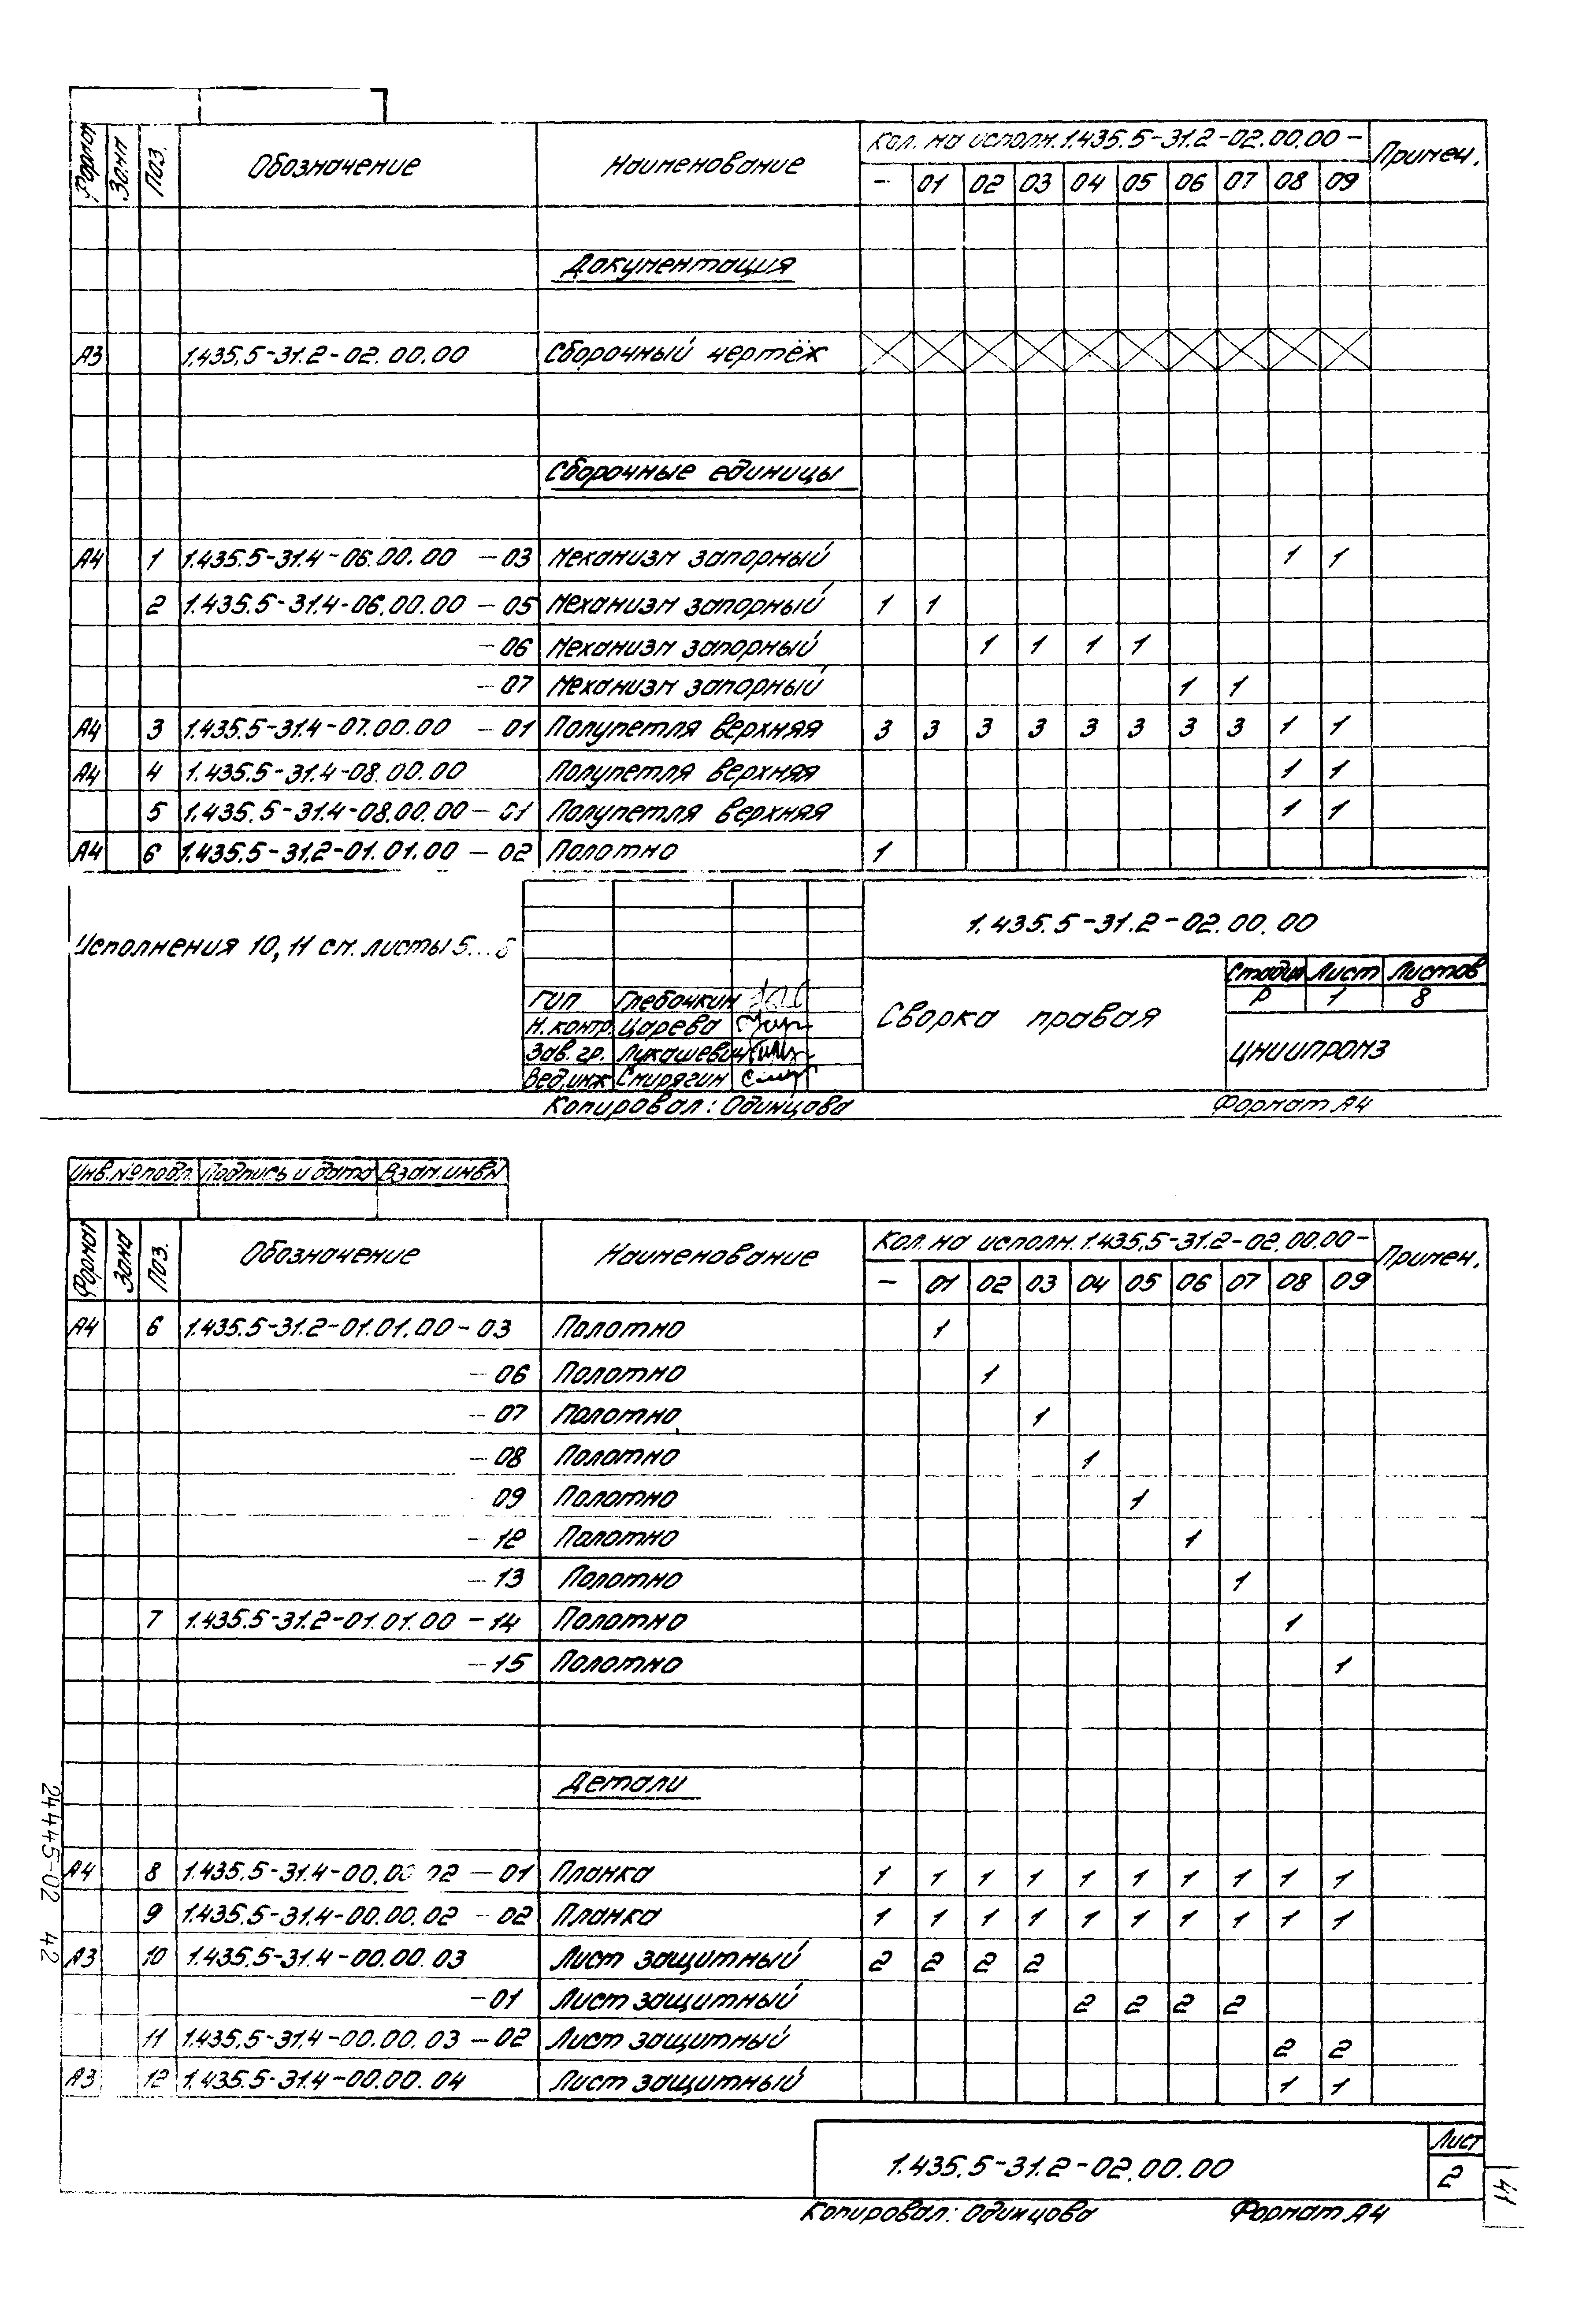 Формат Зона Поз. Обозначение Наименование Кол. на исполн. 1.435.5-31.2-02.00.00 - Примеч.
- 01 02 03 04 05 06 07 08 09
Документация
А3 1.435.5-31.2-02.00.00 Сборочный чертёж
Сборочные единицы
А4 1 1.435.5-31.4-06.00.00 -03 Механизм запорный 1 1
2 1.435.5-31.4-06.00.00 -05 Механизм запорный 1 1
-06 Механизм запорный 1 1 1 1
-07 Механизм запорный 1 1
А4 3 1.435.5-31.4-07.00.00 -01 Полупетля верхняя 3 3 3 3 3 3 3 3 1 1
А4 4 1.435.5-31.4-08.00.00 Полупетля верхняя 1 1
5 1.435.5-31.4-08.00.00-01 Полупетля верхняя 1 1
А4 6 1.435.5-31.2-01.01.00 -02 Полотно 1
Исполнения 10, 11 см. листы 5...8
1.435.5-31.2-02.00.00
ГИП Глебочкин
Н.контр. Царева
Зав. гр. Лукашевич
Вед.инж Смирягин
Сборка правая
Стадия Лист Листов
Р 1 8
ЦНИИПРОМЗ
Копировал: Одинцова Формат А4
Инв.№подл. Подпись и дата Взам.инв№
Формат Зона Поз. Обозначение Наименование Кол. на исполн. 1.435.5-31.2-02.00.00- Примеч.
- 01 02 03 04 05 06 07 08 09
А4 6 1.435.5-31.2-01.01.00-03 Полотно 1
-06 Полотно 1
-07 Полотно 1
-08 Полотно 1
09 Полотно 1
-12 Полотно 1
-13 Полотно 1
7 1.435.5-31.2-01.01.00 -14 Полотно 1
-15 Полотно 1
Детали
А4 8 1.435.5-31.4-00.00.02 -01 Планка 1 1 1 1 1 1 1 1 1 1
9 1.435.5-31.4-00.00.02 -02 Планка 1 1 1 1 1 1 1 1 1 1
А3 10 1.435.5-31.4-00.00.03 Лист защитный 2 2 2 2
-01 Лист защитный 2 2 2 2
11 1.435.5-31.4-00.00.03 -02 Лист защитный 2 2
А3 12 1.435.5-31.4-00.00.04 Лист защитный 1 1
24445-02 42
1.435.5-31.2-02.00.00
Лист
2
41
Копировал: Одинцова Формат А4